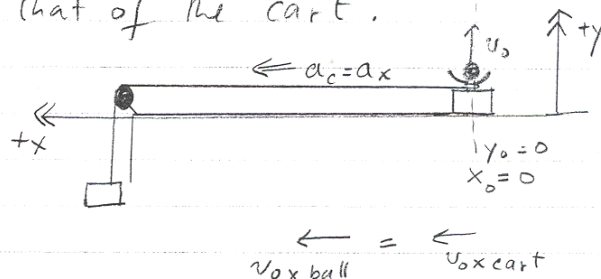 that of the cart.
+y
v₀
a_c = a_x
+x
y₀ = 0
x₀ = 0
=
v₀x ball v₀x cart